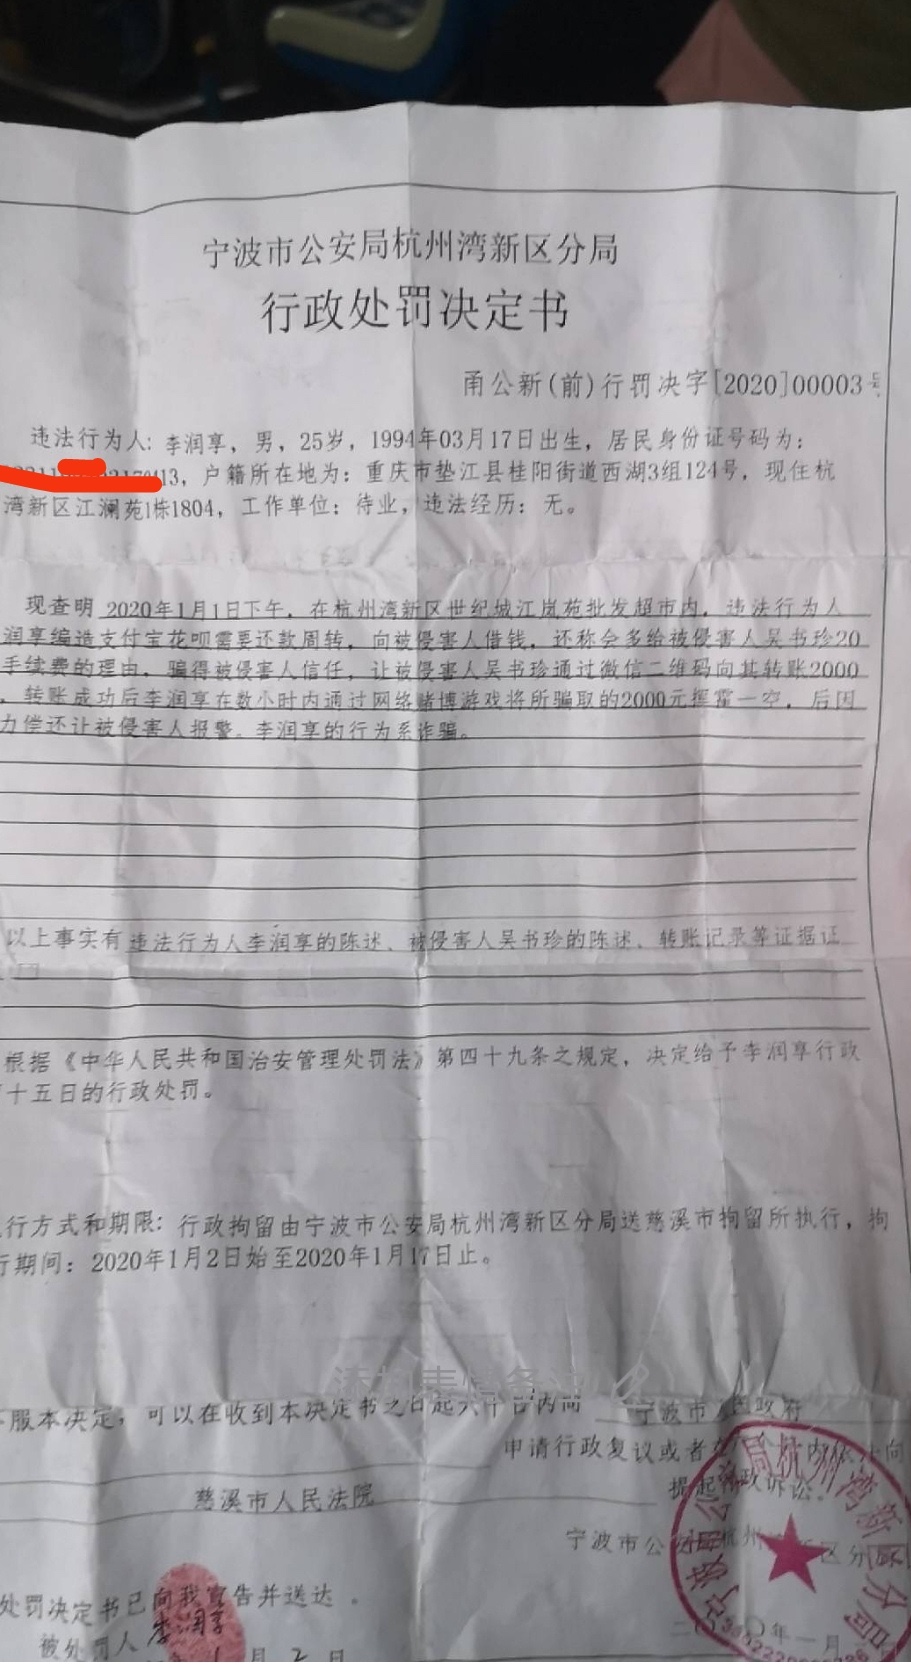 宁波市公安局杭州湾新区分局
行政处罚决定书
甬公新(前)行罚决字[2020]00003号
违法行为人:李润享，男，25岁，1994年03月17日出生，居民身份证号码为:
13，户籍所在地为:重庆市垫江县桂阳街道西湖3组124号，现住杭
湾新区江澜苑1栋1804，工作单位:待业，违法经历:无。
现查明 2020年1月1日下午，在杭州湾新区世纪城江岚苑批发超市内，违法行为人
润享编造支付宝花呗需要还款周转，向被侵害人借钱，还称会多给被侵害人吴书珍20
手续费的理由，骗得被侵害人信任，让被侵害人吴书珍通过微信二维码向其转账2000
，转账成功后李润享在数小时内通过网络赌博游戏将所骗取的2000元挥霍一空，后因
力偿还让被侵害人报警。李润享的行为系诈骗。
以上事实有违法行为人李润享的陈述、被侵害人吴书珍的陈述、转账记录等证据证
根据《中华人民共和国治安管理处罚法》第四十九条之规定，决定给予李润享行政
十五日的行政处罚。
行方式和期限:行政拘留由宁波市公安局杭州湾新区分局送慈溪市拘留所执行，拘
行期间:2020年1月2日始至2020年1月17日止。
服本决定，可以在收到本决定书之日起六十日内向 宁波市人民政府
申请行政复议或者在 个 内依法向
慈溪市人民法院 提起行政诉讼。
宁波市公安局杭州 新区分
二〇 〇年一月
处罚决定书已向我宣告并送达．
被处罚人 李润享
1月2日